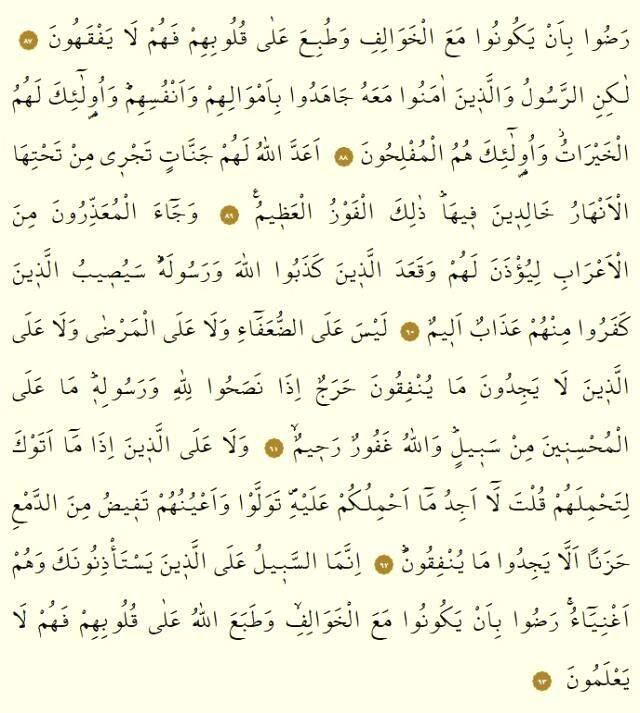 رَضُوا بِاَنْ يَكُونُوا مَعَ الْخَوَالِفِ وَطُبِعَ عَلٰى قُلُوبِهِمْ فَهُمْ لَا يَفْقَهُونَ ﴿٨٧﴾
لٰكِنِ الرَّسُولُ وَالَّذ۪ينَ اٰمَنُوا مَعَهُ جَاهَدُوا بِاَمْوَالِهِمْ وَاَنْفُسِهِمْۜ وَاُو۬لٰٓئِكَ لَهُمُ
الْخَيْرَاتُۘ وَاُو۬لٰٓئِكَ هُمُ الْمُفْلِحُونَ ﴿٨٨﴾ اَعَدَّ اللّٰهُ لَهُمْ جَنَّاتٍ تَجْر۪ي مِنْ تَحْتِهَا
الْاَنْهَارُ خَالِد۪ينَ ف۪يهَاۜ ذٰلِكَ الْفَوْزُ الْعَظ۪يمُ۟ ﴿٨٩﴾ وَجَٓاءَ الْمُعَذِّرُونَ مِنَ
الْاَعْرَابِ لِيُؤْذَنَ لَهُمْ وَقَعَدَ الَّذ۪ينَ كَذَبُوا اللّٰهَ وَرَسُولَهُۜ سَيُص۪يبُ الَّذ۪ينَ
كَفَرُوا مِنْهُمْ عَذَابٌ اَل۪يمٌ ﴿٩٠﴾ لَيْسَ عَلَى الضُّعَفَٓاءِ وَلَا عَلَى الْمَرْضٰى وَلَا عَلَى
الَّذ۪ينَ لَا يَجِدُونَ مَا يُنْفِقُونَ حَرَجٌ اِذَا نَصَحُوا لِلّٰهِ وَرَسُولِه۪ۜ مَا عَلَى
الْمُحْسِن۪ينَ مِنْ سَب۪يلٍۜ وَاللّٰهُ غَفُورٌ رَح۪يمٌۙ ﴿٩١﴾ وَلَا عَلَى الَّذ۪ينَ اِذَا مَٓا اَتَوْكَ
لِتَحْمِلَهُمْ قُلْتَ لَٓا اَجِدُ مَٓا اَحْمِلُكُمْ عَلَيْهِۖ تَوَلَّوْا وَاَعْيُنُهُمْ تَف۪يضُ مِنَ الدَّمْعِ
حَزَنًا اَلَّا يَجِدُوا مَا يُنْفِقُونَۜ ﴿٩٢﴾ اِنَّمَا السَّب۪يلُ عَلَى الَّذ۪ينَ يَسْتَأْذِنُونَكَ وَهُمْ
اَغْنِيَٓاءُۚ رَضُوا بِاَنْ يَكُونُوا مَعَ الْخَوَالِفِۙ وَطَبَعَ اللّٰهُ عَلٰى قُلُوبِهِمْ فَهُمْ لَا
يَعْلَمُونَ ﴿٩٣﴾